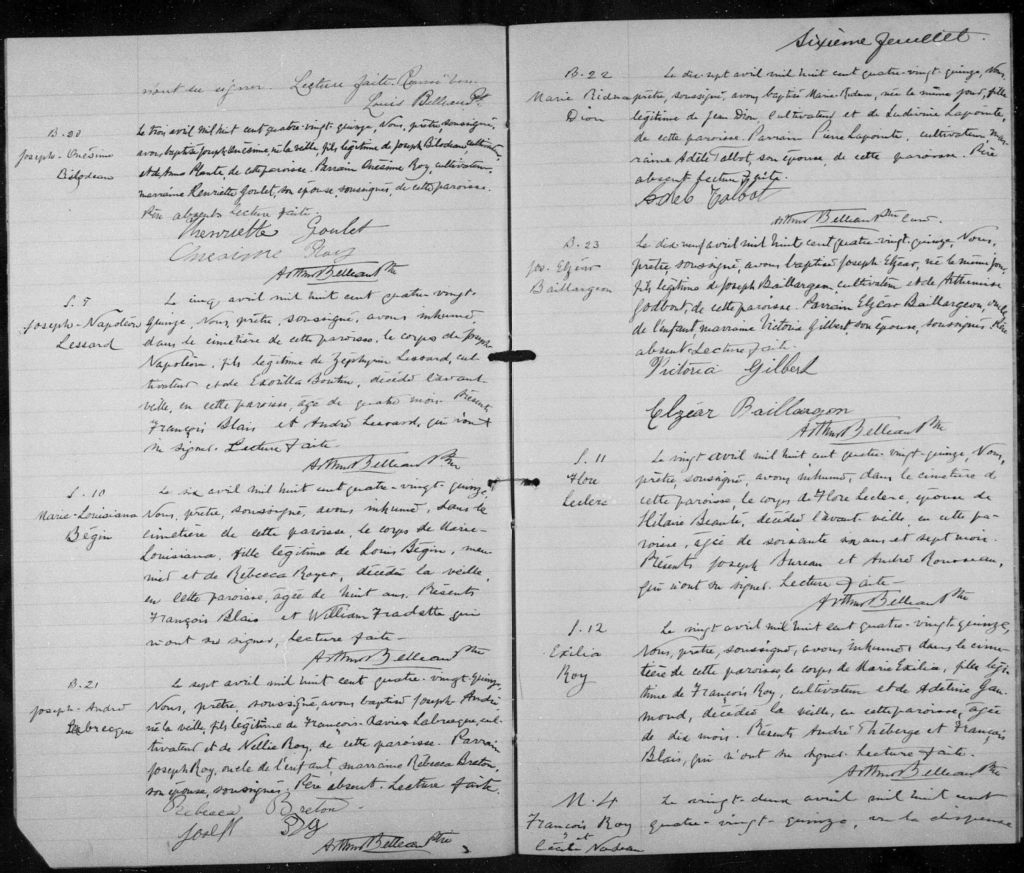 n'ont su signer. Lecture faite.
Louis Belleau Ptr
B.20
Joseph-Onésime
Bilodeau
Le trois avril mil huit cent quatre-vingt-quinze, Nous, prêtre, soussigné,
avons baptisé Joseph Onésime, né la veille, fils légitime de Joseph Bilodeau, cultivateur
et de Anna Plante, de cette paroisse. Parrain Onésime Roy, cultivateur,
marraine Henriette Goulet, son épouse, soussignés, de cette paroisse.
Père absent. Lecture faite.
Henriette Goulet
Onesime Roy
Arthur Belleau Ptre
S. 5
Joseph-Napoléon
Lessard
Le cinq avril mil huit cent quatre-vingt-
quinze, Nous, prêtre, soussigné, avons inhumé
dans le cimetière de cette paroisse, le corps de Joseph
Napoléon, fils légitime de Zéphyrin Lessard, cul-
tivateur et de Exorilla Boutin, décédé l'avant-
veille, en cette paroisse, âgé de quatre mois. Présents
François Blais et André Lessard, qui n'ont
su signer. Lecture faite.
Arthur Belleau Ptre
S. 10
Marie-Louisiana
Bégin
Le six avril mil huit cent quatre-vingt-quinze,
Nous, prêtre, soussigné, avons inhumé, dans le
cimetière de cette paroisse, le corps de Marie-
Louisiana, fille légitime de Louis Bégin, meu-
nier et de Rébecca Royer, décédée la veille,
en cette paroisse, âgée de huit ans. Présents
François Blais et William Fradette qui
n'ont su signer, Lecture faite -
Arthur Belleau Ptre
B. 21
Joseph-André
Labrecque
Le sept avril mil huit cent quatre-vingt-quinze,
Nous, prêtre, soussigné, avons baptisé Joseph André
né la veille, fils légitime de François-Xavier Labrecque, cul-
tivateur et de Nellie Roy, de cette paroisse. Parrain
Joseph Roy, oncle de l'enfant, marraine Rébecca Breton,
son épouse, soussignés. Père absent. Lecture faite.
Rebecca Breton
Joseph Roy
Arthur Belleau Ptre
Sixième feuillet.
B. 22
Marie
Dion
Le dix-sept avril mil huit cent quatre-vingt-quinze, Nous
prêtre, soussigné, avons baptisé Marie, née le même jour, fille
légitime de Jean Dion, cultivateur et de Ludivine Lapointe,
de cette paroisse. Parrain Pierre Lapointe, cultivateur, mar-
raine Adèle Talbot, son épouse, de cette paroisse. Père
absent. Lecture faite.
Adele Talbot
Arthur Belleau Ptre Curé.
B. 23
Jos. Elzéar
Baillargeon
Le dix-neuf avril mil huit cent quatre-vingt-quinze, Nous,
prêtre, soussigné, avons baptisé Joseph Elzéar, né le même jour,
fils légitime de Joseph Baillargeon, cultivateur et de Arthémise
Godbout, de cette paroisse. Parrain Elzéar Baillargeon, oncle
de l'enfant, marraine Victoria Gilbert son épouse, soussignés. Père
absent. Lecture faite.
Victoria Gilbert
Elzéar Baillargeon
Arthur Belleau Ptre
S. 11
Flore
Leclerc
Le vingt avril mil huit cent quatre-vingt-quinze, Nous,
prêtre, soussigné, avons inhumé, dans le cimetière de
cette paroisse, le corps de Flore Leclerc, épouse de
Hilaire Beauté, décédée l'avant-veille, en cette pa-
roisse, âgée de soixante ans et sept mois.
Présents Joseph Bureau et André Rousseau,
qui n'ont su signer. Lecture faite -
Arthur Belleau Ptre
S. 12
Exilia
Roy
Le vingt avril mil huit cent quatre-vingt-quinze,
Nous, prêtre, soussigné, avons inhumé, dans le cime-
tière de cette paroisse, le corps de Marie Exilia, fille légi-
time de François Roy, cultivateur et de Adeline Gau-
mond, décédée la veille, en cette paroisse, âgée
de dix mois. Présents André Théberge et François
Blais, qui n'ont su signer. Lecture faite.
Arthur Belleau Ptre
M. 4
François Roy
et
Cécile Nadeau
Le vingt-deux avril mil huit cent
quatre-vingt-quinze, vu la dispense